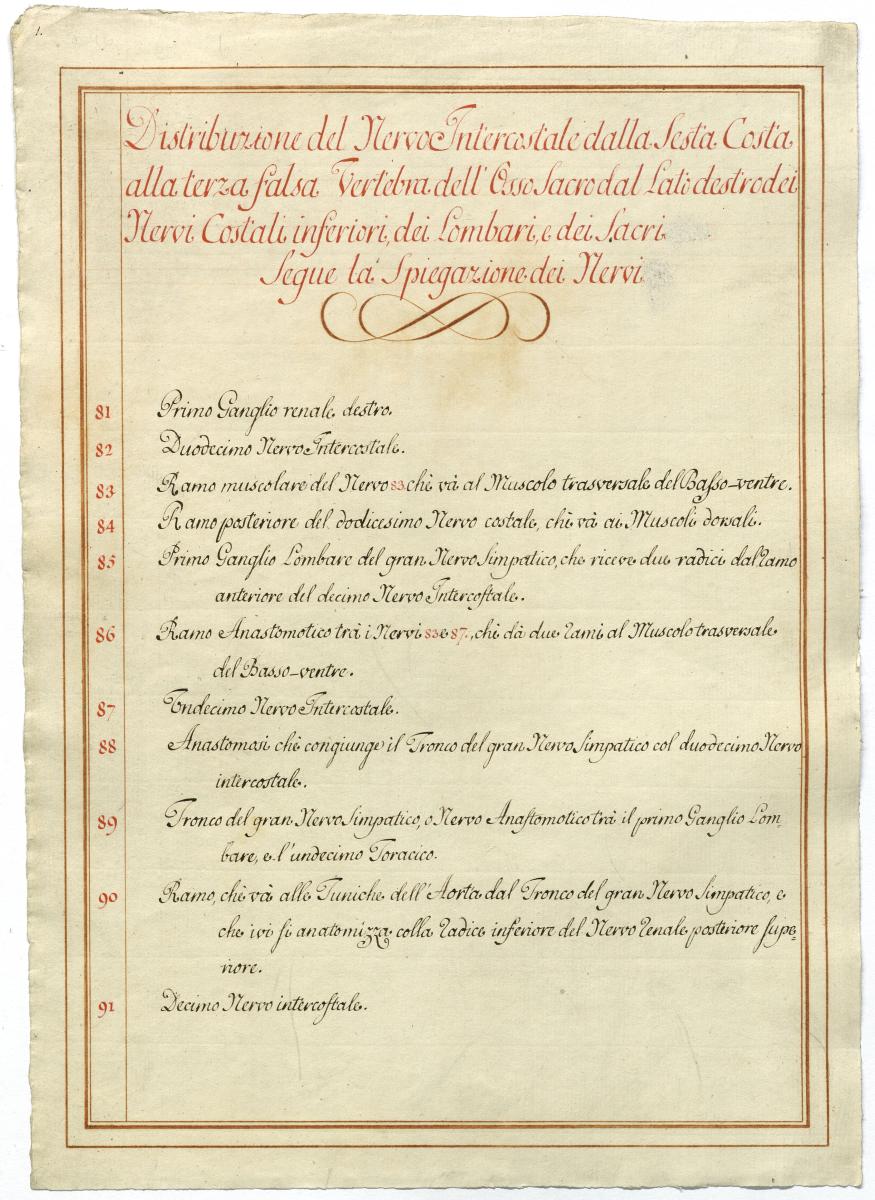 1.
Distribuzione del Nervo Intercostale dalla Sesta Costa
alla terza falsa Vertebra dell'Osso Sacro dal Lato destro dei
Nervi Costali inferiori, dei Lombari, e dei Sacri
Segue la Spiegazione dei Nervi
81 Primo Ganglio renale destro.
82 Duodecimo Nervo Intercostale.
83 Ramo muscolare del Nervo 83. chè và al Muscolo trasversale del Baſso-ventre.
84 Ramo posteriore del dodicesimo Nervo costale, chè và ai Muscoli dorsali.
85 Primo Ganglio Lombare del gran Nervo Simpatico, che riceve due radici dal Ramo
anteriore del decimo Nervo Intercoſtale.
86 Ramo Anastomotico trà i Nervi 83 e 87., chè dà due rami al Muscolo trasversale
del Basso-ventre.
87 Undecimo Nervo Intercostale.
88 Anastomosi chè congiunge il Tronco del gran Nervo Simpatico col duodecimo Nervo
intercostale.
89 Tronco del gran Nervo Simpatico, o Nervo Anaſtomotico trà il primo Ganglio Lom-
bare, e l'undecimo Toracico.
90 Ramo, chè và alle Tuniche dell'Aorta dal Tronco del gran Nervo Simpatico, e
che ivi ſi anatomizza colla radice inferiore del Nervo renale posteriore ſupe-
riore.
91 Decimo Nervo intercoſtale.